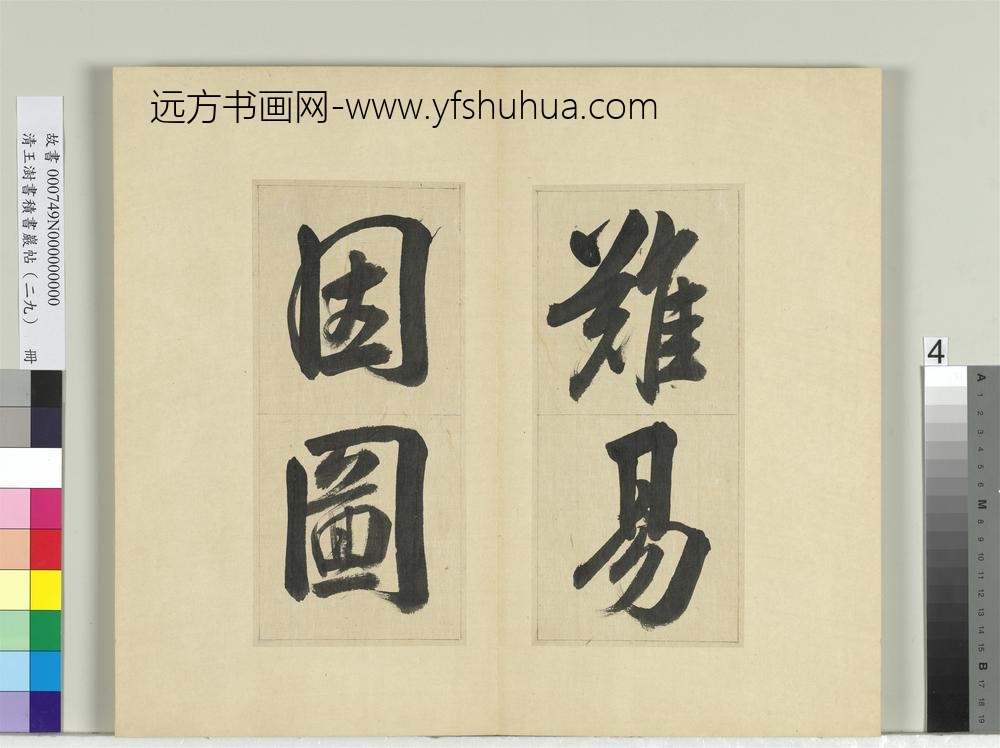 远方书画网-www.yfshuhua.com
難易
固圖
故書 000749N000000000
清王澍書積書巖帖（二九） 冊
4
A 1 2 3 4 5 6 M 8 9 10 11 12 13 14 15 B 17 18 19